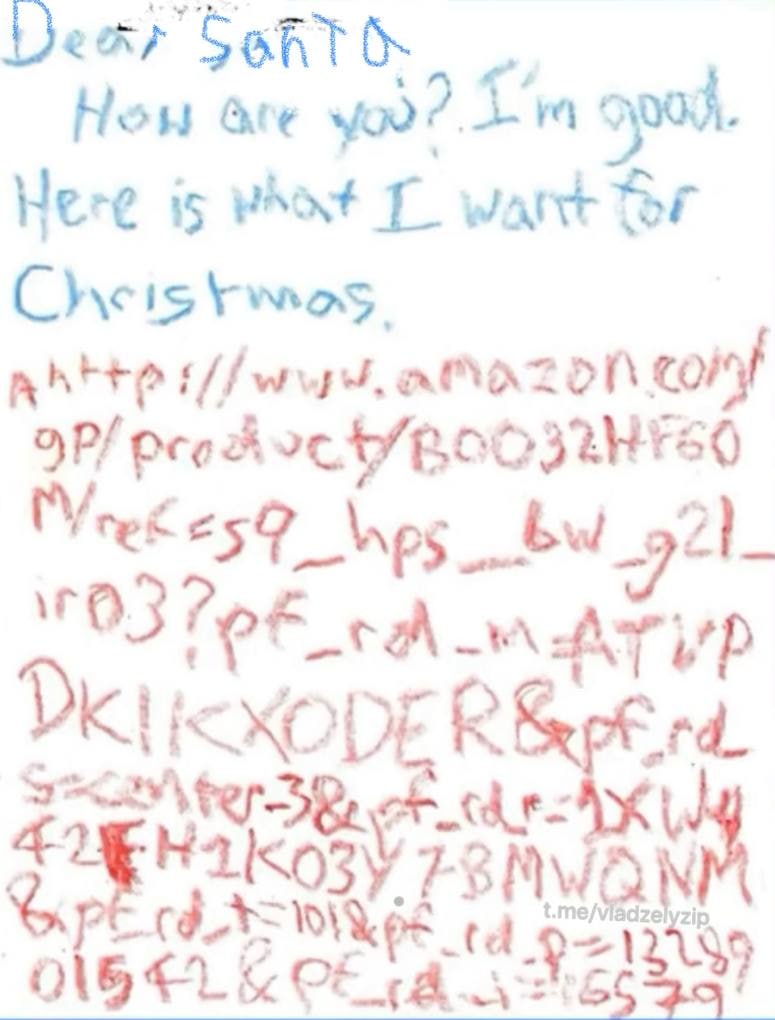 Dear Santa
How are you? I'm good.
Here is what I want for
Christmas.
A http://www.amazon.com/
gp/product/B0032HF60
M/ref=s9_hps_bw_g21_
ir03?pf_rd_m=ATVP
DKIKX0DER&pf_rd_
s=center-3&pf_rd_r=1XW4
42FH1K03Y78MWQNM
&pf_rd_t=101&pf_rd_p=13289
01542&pf_rd_i=16579
t.me/vladzelyzip